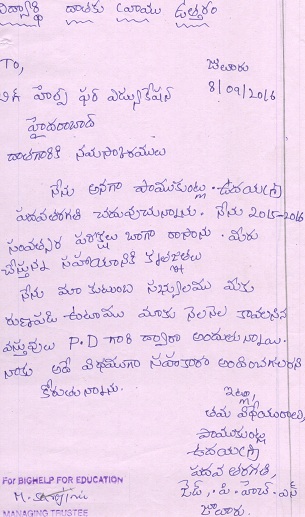 విద్యార్థి దాతకు వ్రాయు ఉత్తరం
To,
జులూరు
8/09/2016
బిగ్ హెల్ప్ ఫర్ ఎడ్యుకేషన్
హైదరాబాద్
దాతగారికి నమస్కారములు
నేను అనగా పాముకుంట్ల . ఉదయ(శ్రీ)
పదవతరగతి చదువుచున్నాను. నేను 2015-2016
సంవత్సర పరీక్షలు బాగా రాసాను. మీరు
చేస్తున్న సహాయానికి కృతజ్ఞతలు
నేను మా కుటుంబ సభ్యులము మీకు
రుణపడి ఉంటాము మాకు నెలనెల కావలసిన
వస్తువులు P.D గారి ద్వారా అందుతున్నాయి.
నాకు అదే విధముగా సహకారం అందించగలరని
కోరుతున్నాను.
ఇట్లు,
తమ విధేయురాలు,
పాముకుంట్ల
ఉదయ(శ్రీ)
పదవ తరగతి,
జెడ్. పి. హెచ్. ఎస్
జులూరు.
For BIGHELP FOR EDUCATION
MANAGING TRUSTEE